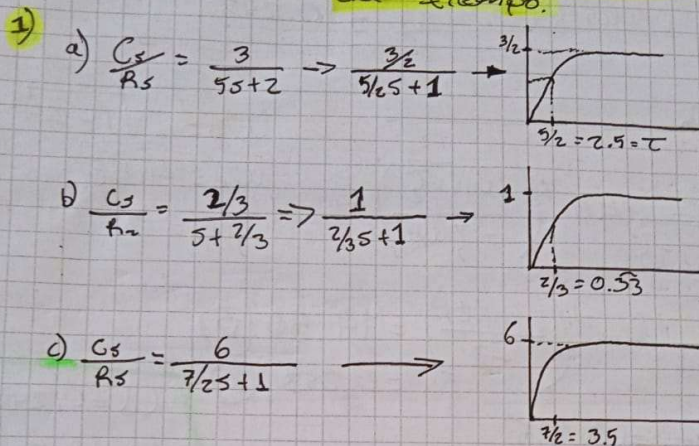 tiempo.
1)
a) Cs/Rs = 3/(5s+2) -> (3/2)/(5/2s+1) → 3/2
5/2 = 2.5 = τ
b) Cs/R2 = (2/3)/(s+2/3) => 1/(2/3s+1) → 1
2/3 = 0.53
c) Cs/Rs = 6/(7/2s+1) → 6
7/2 = 3.5